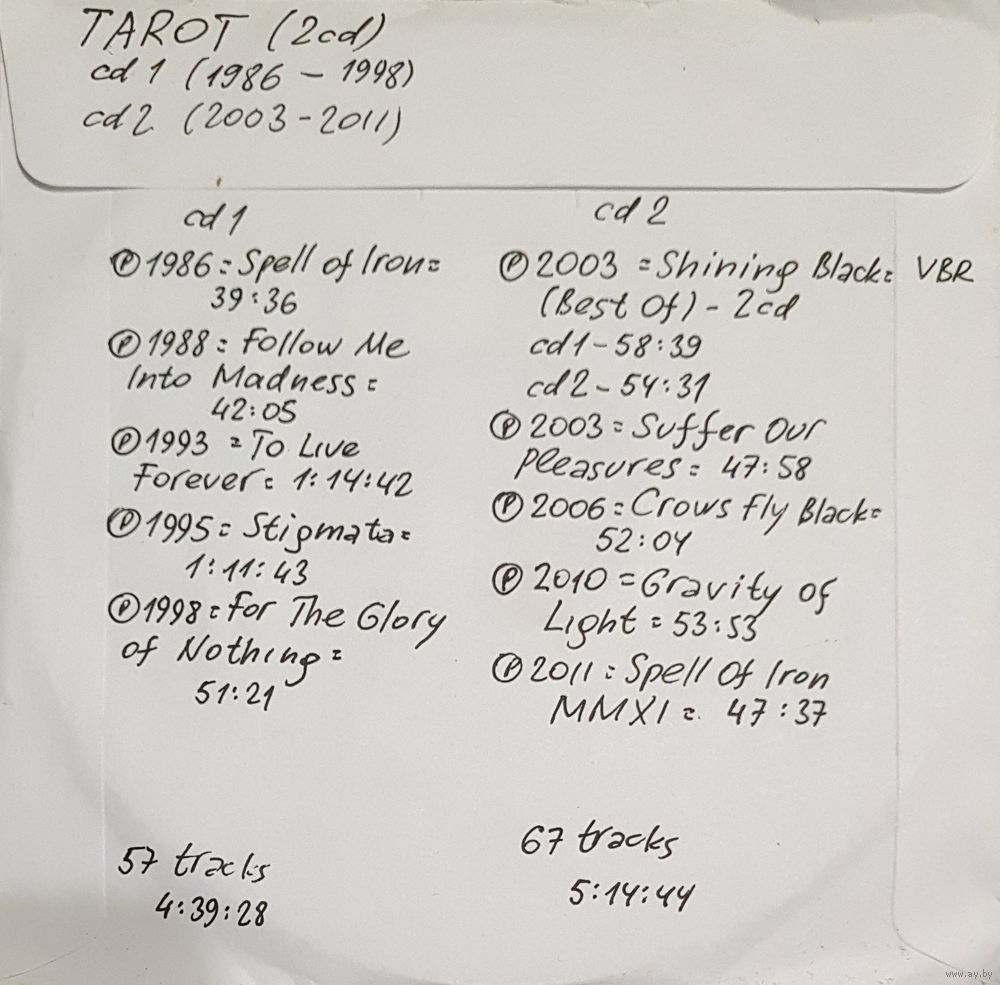 TAROT (2cd)
cd 1 (1986 - 1998)
cd 2 (2003 - 2011)
cd 1
Ⓟ 1986 = Spell of Iron =
39:36
Ⓟ 1988 = Follow Me
Into Madness =
42:05
Ⓟ 1993 = To Live
Forever = 1:14:42
Ⓟ 1995 = Stigmata =
1:11:43
Ⓟ 1998 = For The Glory
of Nothing =
51:21
57 tracks
4:39:28
cd 2
Ⓟ 2003 = Shining Black = VBR
(Best Of) - 2cd
cd1 - 58:39
cd2 - 54:31
Ⓟ 2003 = Suffer Our
Pleasures = 47:58
Ⓟ 2006 = Crows Fly Black =
52:04
Ⓟ 2010 = Gravity of
Light = 53:53
Ⓟ 2011 = Spell Of Iron
MMXI = 47:37
67 tracks
5:14:44
www.ay.by